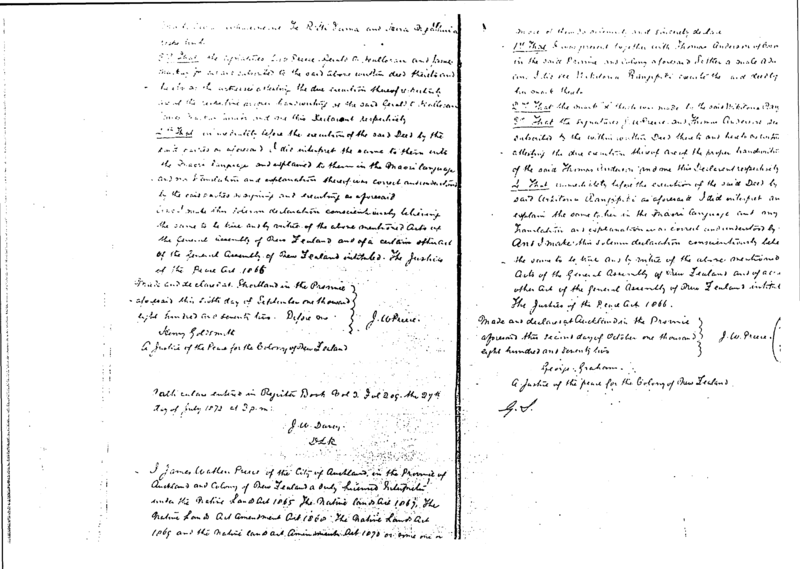 Te Retti Turna and Mera
3rd That the signatures J. W. Preece Gerald O. Halloran and
subscribed to the said above written deed thereto and
hereto as the witnesses attesting the due execution thereof respectively
are of the respective proper handwriting of the said Gerald O. Halloran
and me this Declarant respectively
4th That immediately before the execution of the said Deed by the
said parties as aforesaid I did interpret the same to them in the
the Maori language and explained to them in the Maori language
and my translation and explanation thereof was correct and understood
by the said parties so signing and executing as aforesaid
And I make this solemn declaration conscientiously believing
the same to be true and by virtue of the above mentioned Acts of
the General Assembly of New Zealand and of a certain other Act
of the General Assembly of New Zealand intituled The Justices
of the Peace Act 1866
Made and declared at Shortland in the Province
aforesaid this sixth day of September one thousand
eight hundred and seventy two. Before me
J. W. Preece.
Henry Goldsmith
A Justice of the Peace for the Colony of New Zealand
Particulars entered in Register Book Vol 2 Fol 209 the 29th
day of July 1873 at 3 p.m:
J. W. Darcy
D L R
I James Wathan Preece of the City of Auckland in the Province of
Auckland and Colony of New Zealand a duly licensed Interpreter
under the Native Lands Act 1865 The Native Lands Act 1867, The
Native Lands Act Amendment Act 1868 The Native Lands Act
1869 and the Native Land Act Amendment Act 1870 or some one or
more of them do solemnly and sincerely declare
1st That I was present together with Thomas Anderson of
in the said Province and Colony aforesaid Settler &
did see Wikitoria Rangipiti execute the said deed by
her mark thereto
2nd That the mark X thereto was made by the said Wikitoria
3rd That the signatures J. W. Preece and Thomas Anderson
subscribed to the within written Deed thereto and hereto as witnesses
attesting the due execution thereof are of the proper handwriting
of the said Thomas Anderson and me this Declarant respectively
4 That immediately before the execution of the said Deed by
said Wikitoria Rangipiti as aforesaid I did interpret and
explain the same to her in the Maori language and my
translation and explanation was correct and understood by
And I make this solemn declaration conscientiously
the same to be true and by virtue of the above mentioned
Acts of the General Assembly of New Zealand and of a
other Act of the General Assembly of New Zealand
The Justices of the Peace Act 1866.
Made and declared at Auckland in the Province
aforesaid this second day of October one thousand
eight hundred and seventy two
J. W. Preece.
George Graham.
A Justice of the peace for the Colony of New Zealand.
G. S.